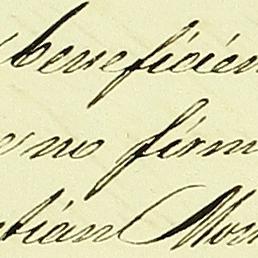 beneficien
no firm
tian Mor